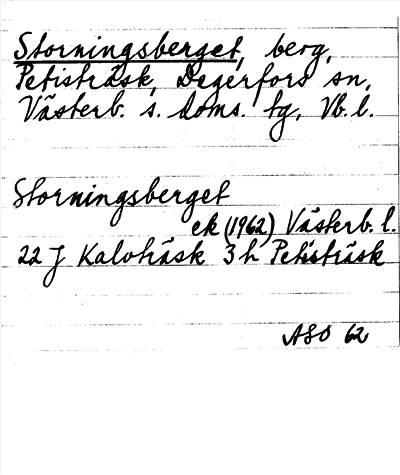 Storningsberget, berg,
Petisträsk, Degerfors sn,
Västerb. s. doms. tg, Vb. l.
Storningsberget
ek (1962) Västerb. l.
22 J Kalvträsk 3 h Petisträsk
ASO 62